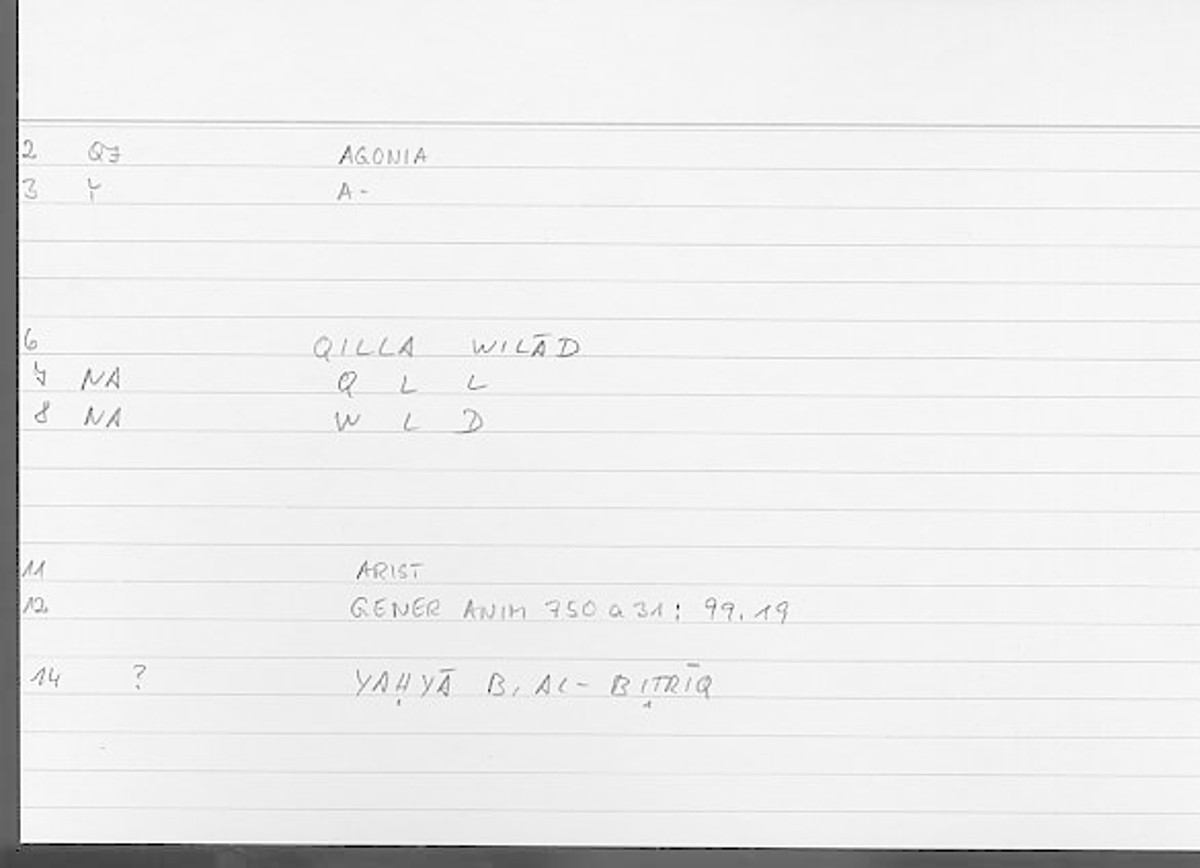 2 QZ AGONIA
3 Y A-
6 QILLA WILĀD
7 NA Q L L
8 NA W L D
11 ARIST
12 GENER ANIM 750 a 31 : 99.19
14 ? YAḤYĀ B. AL- BIṬRĪQ